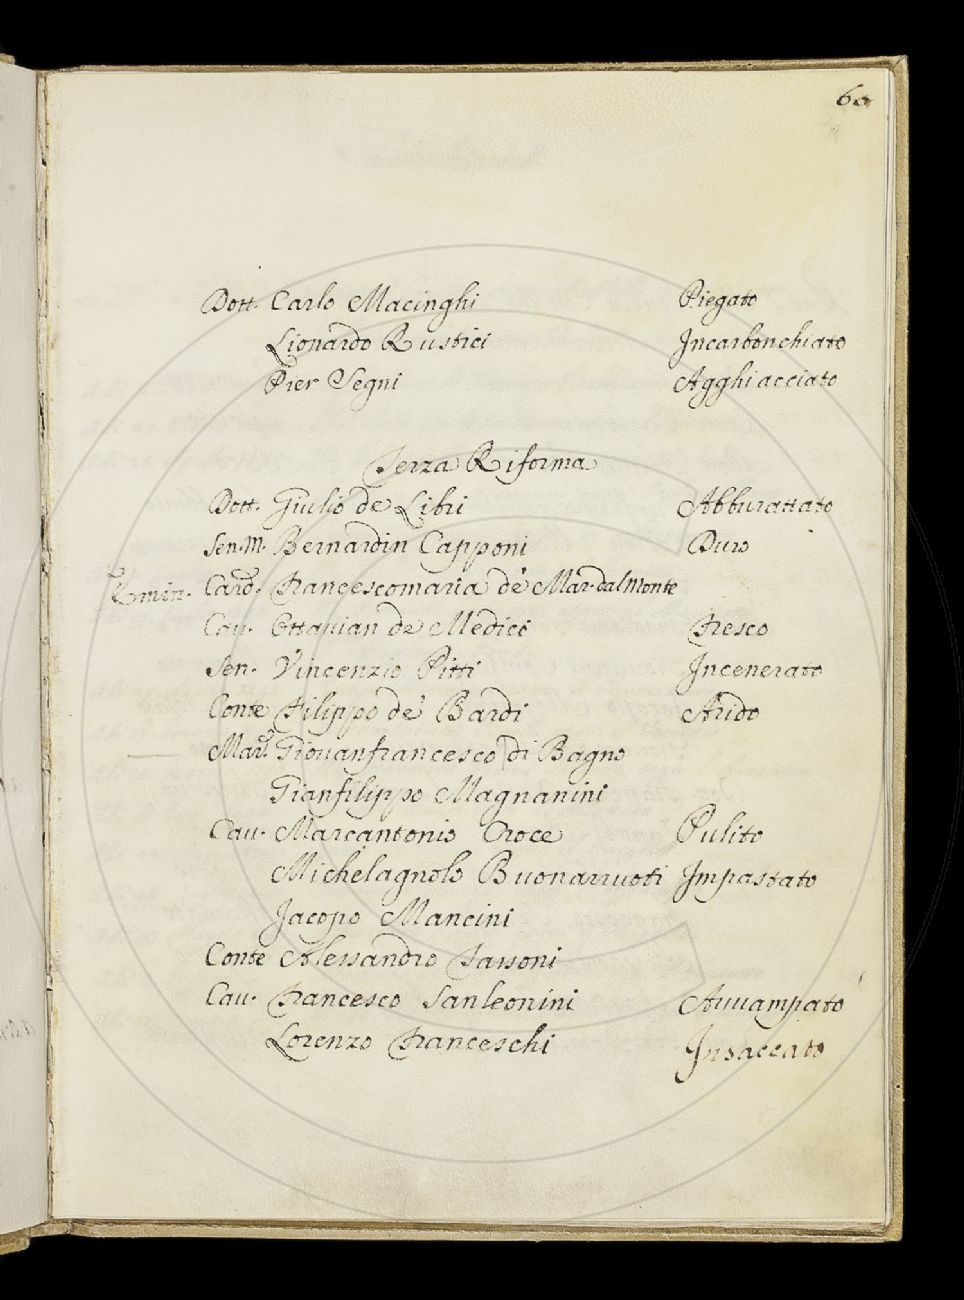 60
Dott. Carlo Macinghi Piegato
Lionardo Rustici Incarbonchiato
Pier Segni Agghiacciato
Terza Riforma
Dott. Giulio de Libri Abburattato
Sen. M. Bernardin Capponi Duro
Emin. Card. Francescomaria de' Mar. dal Monte
Cav. Ottavian de Medici Fresco
Sen. Vincenzio Pitti Incenerato
Conte Filippo de' Bardi Arido
Mar. Giovanfrancesco di Bagno
Gianfilippo Magnanini
Cav. Marcantonio Croce Pulito
Michelagnolo Buonarruoti Impastato
Jacopo Mancini
Conte Alessandro Tassoni
Cav. Francesco Sanleonini Avvampato
Lorenzo Franceschi Insaccato